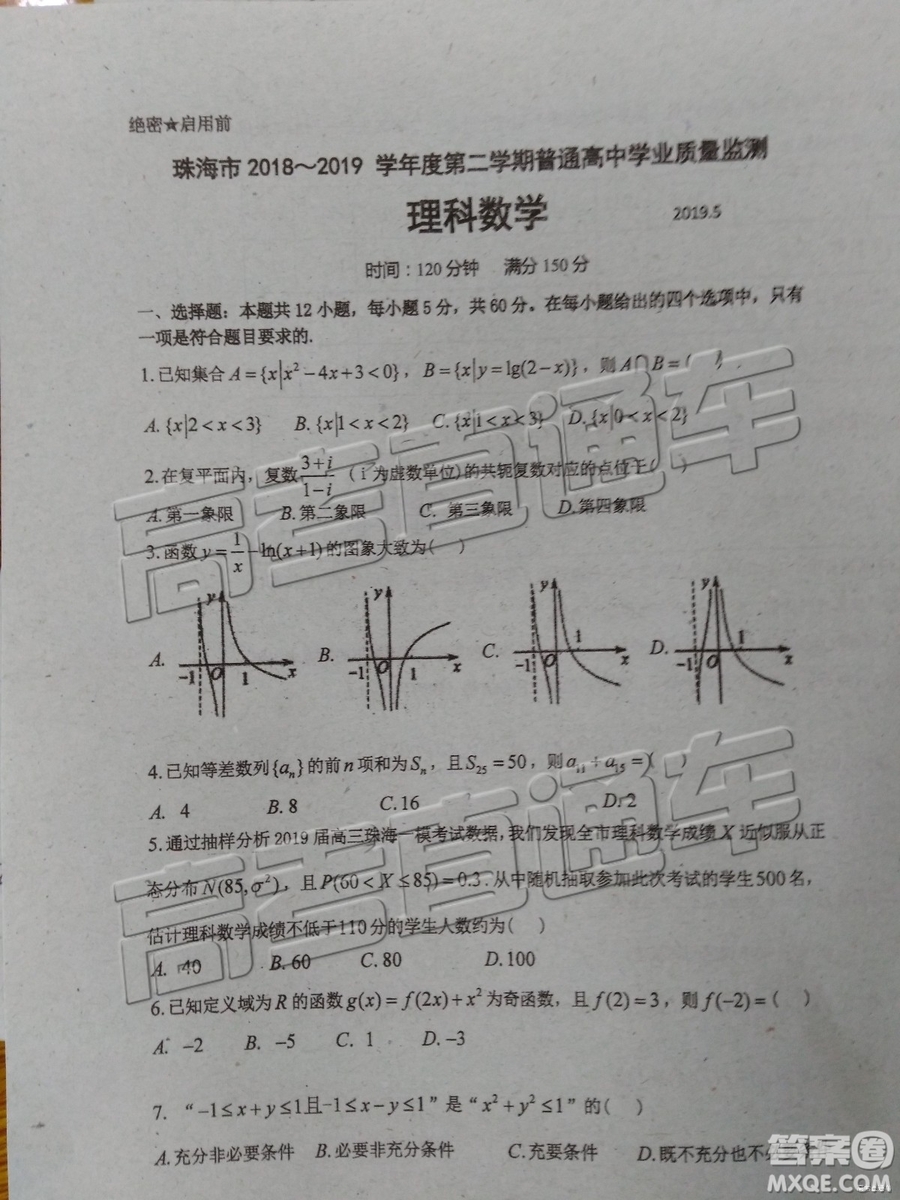 绝密★启用前
珠海市 2018～2019 学年度第二学期普通高中学业质量监测
理科数学 2019.5
时间：120 分钟 满分 150 分
一、选择题：本题共 12 小题，每小题 5 分，共 60 分。在每小题给出的四个选项中，只有
一项是符合题目要求的.
1.已知集合 A={x|x²-4x+3<0}，B={x|y=lg(2-x)}，则 A∩B=( )
A.{x|2<x<3} B.{x|1<x<2} C.{x|1<x<3} D.{x|0<x<2}
2.在复平面内，复数 (3+i)/(1-i) (i 为虚数单位)的共轭复数对应的点位于( )
A.第一象限 B.第二象限 C.第三象限 D.第四象限
3.函数 y=1/x-ln(x+1)的图象大致为( )
A. y -1 O 1 x B. y -1 O 1 x C. y -1 O 1 x D. y -1 O 1 x
4.已知等差数列{aₙ}的前 n 项和为 Sₙ，且 S₂₅=50，则 a₁₁+a₁₅=( )
A. 4 B. 8 C.16 D. 2
5.通过抽样分析 2019 届高三珠海一模考试数据，我们发现全市理科数学成绩 X 近似服从正
态分布 N(85,σ²)，且 P(60<X≤85)=0.3.从中随机抽取参加此次考试的学生 500 名，
估计理科数学成绩不低于 110 分的学生人数约为( )
A. 40 B. 60 C. 80 D. 100
6.已知定义域为 R 的函数 g(x)=f(2x)+x²为奇函数，且 f(2)=3，则 f(-2)=( )
A. -2 B. -5 C. 1 D. -3
7. “-1≤x+y≤1且-1≤x-y≤1”是“x²+y²≤1”的( )
A.充分非必要条件 B.必要非充分条件 C.充要条件 D.既不充分也不必
高考直通车
高考直通车
答案圈
MXQE.COM